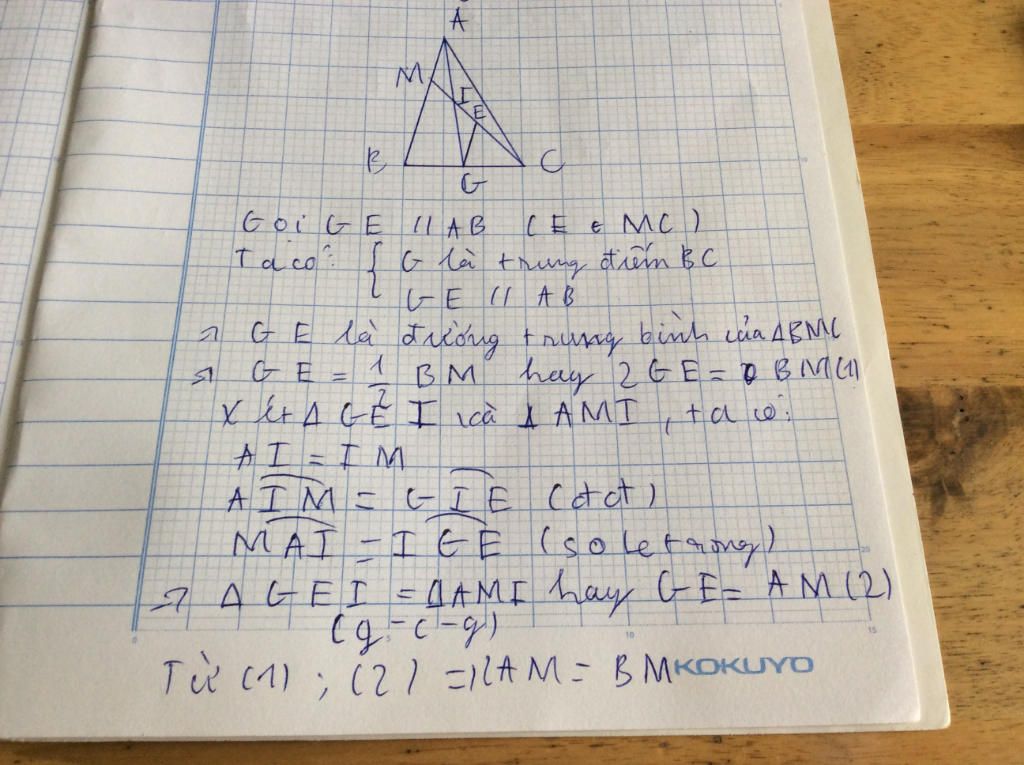 A
M
I
E
B
C
G
Gọi GE // AB (E ∈ MC)
Ta có: { G là trung điểm BC
GE // AB
=> GE là đường trung bình của ΔBMC
=> GE = 1/2 BM hay 2GE = BM (1)
Xét Δ GEI và Δ AMI, ta có:
AI = IM
AIM = GIE (đđ)
MAI = IGE (so le trong)
=> Δ GEI = ΔAMI hay GE = AM (2)
(g-c-g)
Từ (1); (2) => 2AM = BM
KOKUYO
5
10
15
20